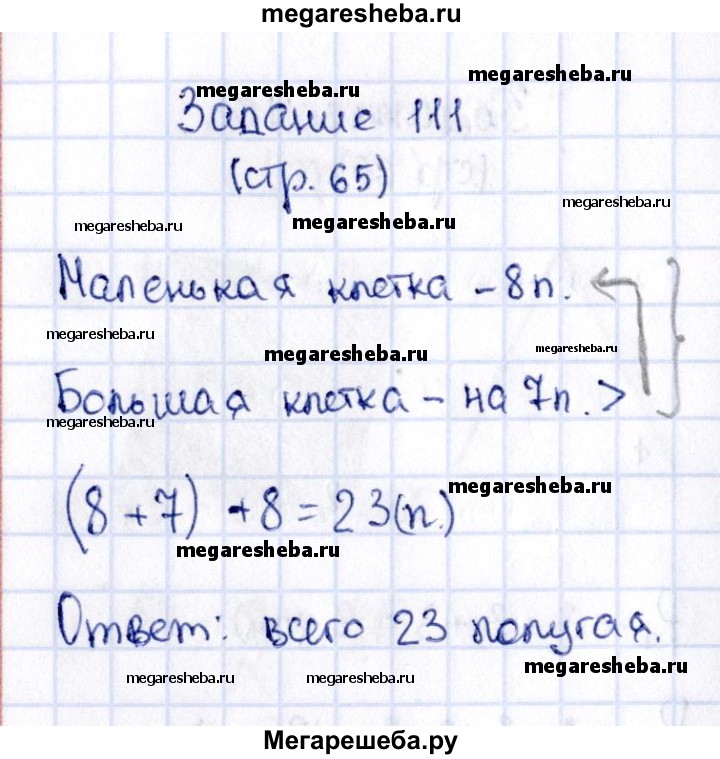 megaresheba.ru
megaresheba.ru
megaresheba.ru
Задание 111
(стр. 65)
megaresheba.ru
megaresheba.ru
megaresheba.ru
Маленькая клетка – 8п.
megaresheba.ru
megaresheba.ru
megaresheba.ru
Большая клетка – на 7п. >
megaresheba.ru
(8 + 7) + 8 = 23(п.)
megaresheba.ru
megaresheba.ru
Ответ: всего 23 попугая.
megaresheba.ru
megaresheba.ru
megaresheba.ru
Мегарешеба.ру